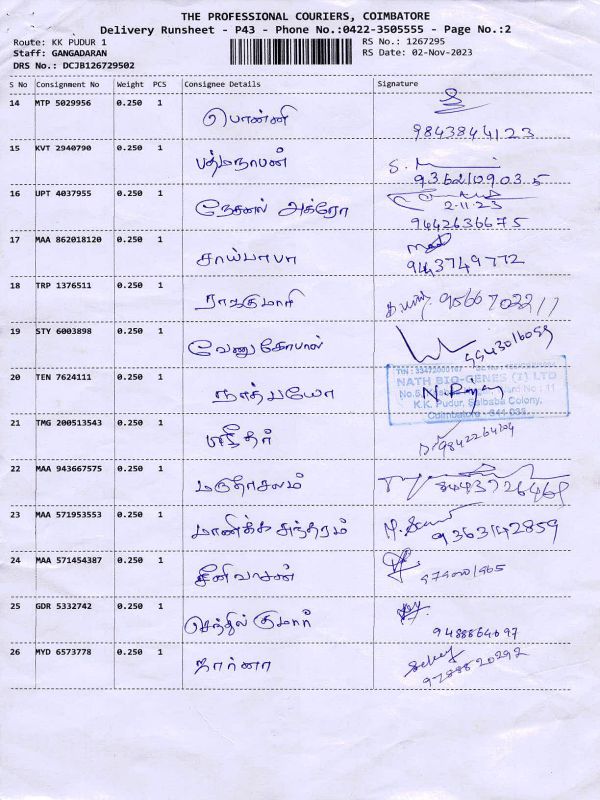 THE PROFESSIONAL COURIERS, COIMBATORE
Delivery Runsheet - P43 - Phone No.:0422-3505555 - Page No.:2
Route: KK PUDUR 1 RS No.: 1267295
Staff: GANGADARAN RS Date: 02-Nov-2023
DRS No.: DCJB126729502
S No Consignment No Weight PCS Consignee Details Signature
14 MTP 5029956 0.250 1 பொண்னி
9843844123
15 KVT 2940790 0.250 1 பத்மநாபன்
9362109035
16 UPT 4037955 0.250 1 நேசனல் அக்ரோ
2.11.23
9442636675
17 MAA 862018120 0.250 1 சாய்பாபா
9443749772
18 TRP 1376511 0.250 1 ராஜகுமாரி
19 STY 6003898 0.250 1 வேணுகோபால்
20 TEN 7624111 0.250 1 நாத்பயோ
NATH BIO-GENES (I) LTD
K.K. Pudur, Saibaba Colony,
Coimbatore
21 TMG 200513543 0.250 1 ஸ்ரீதர்
22 MAA 943667575 0.250 1 மருதாசலம்
23 MAA 571953553 0.250 1 மாணிக்க சுந்தரம்
9363142859
24 MAA 571454387 0.250 1 சீனிவாசன்
25 GDR 5332742 0.250 1 செந்தில் குமார்
26 MYD 6573778 0.250 1
9788820292